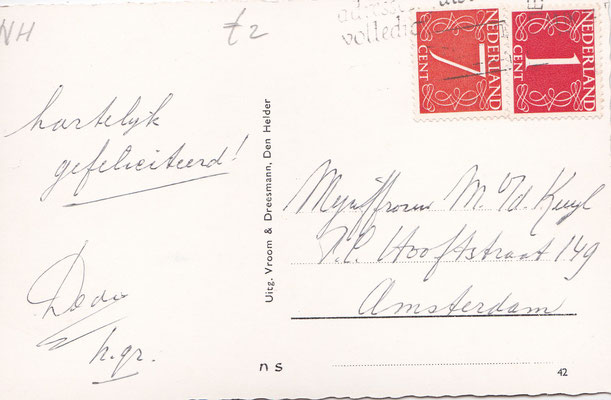 NH
£2
volledig
NEDERLAND
7
CENT
NEDERLAND
1
CENT
hartelijk
gefeliciteerd!
h.gr.
Uitg. Vroom & Dreesmann, Den Helder
Mejuffrouw M. v/d. Kuyl
P.C. Hooftstraat 149
Amsterdam
n s
42